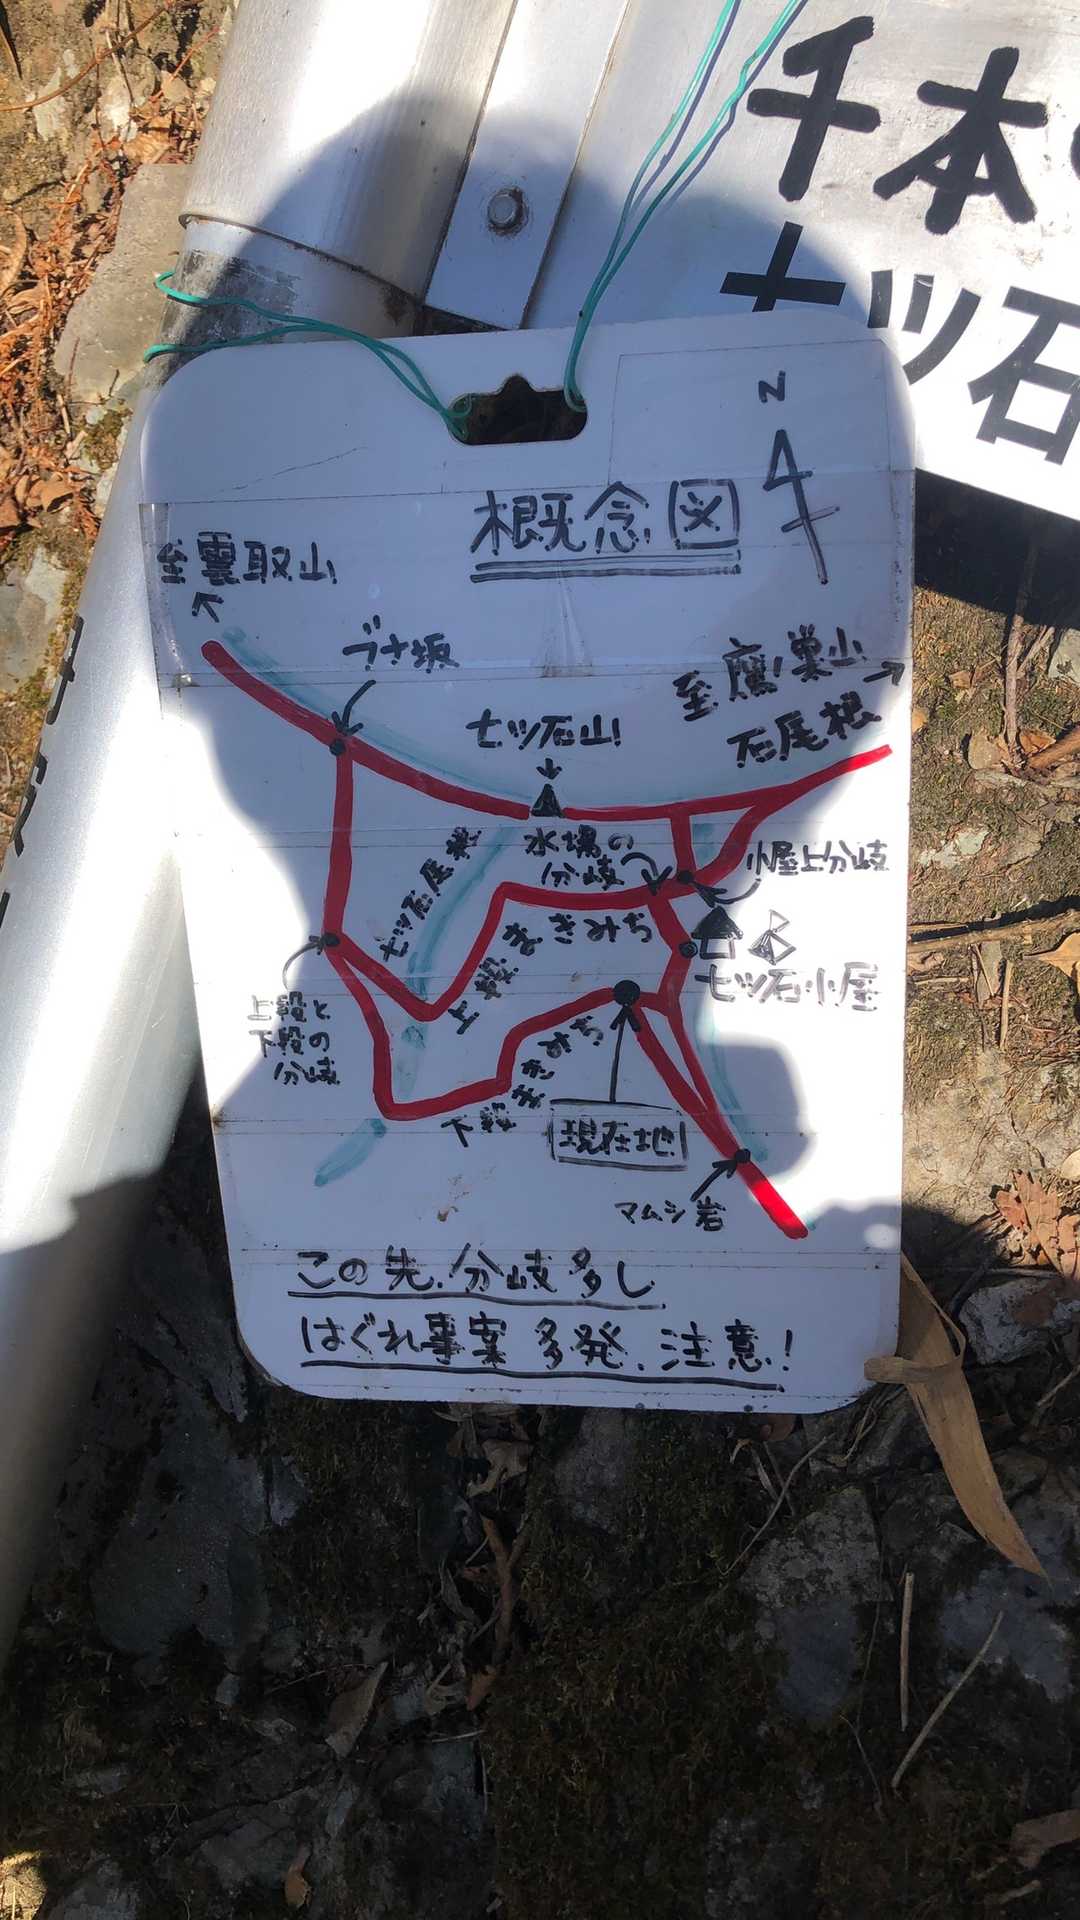 千本
七ツ石
N
概念図
至雲取山
ブナ坂
至鷹ノ巣山
石尾根
七ツ石山
水場の
分岐
小屋上分岐
七ツ石尾根
上段まきみち
七ツ石小屋
上段と
下段の
分岐
下段まきみち
現在地
マムシ岩
この先、分岐多し
はぐれ事案多発、注意！